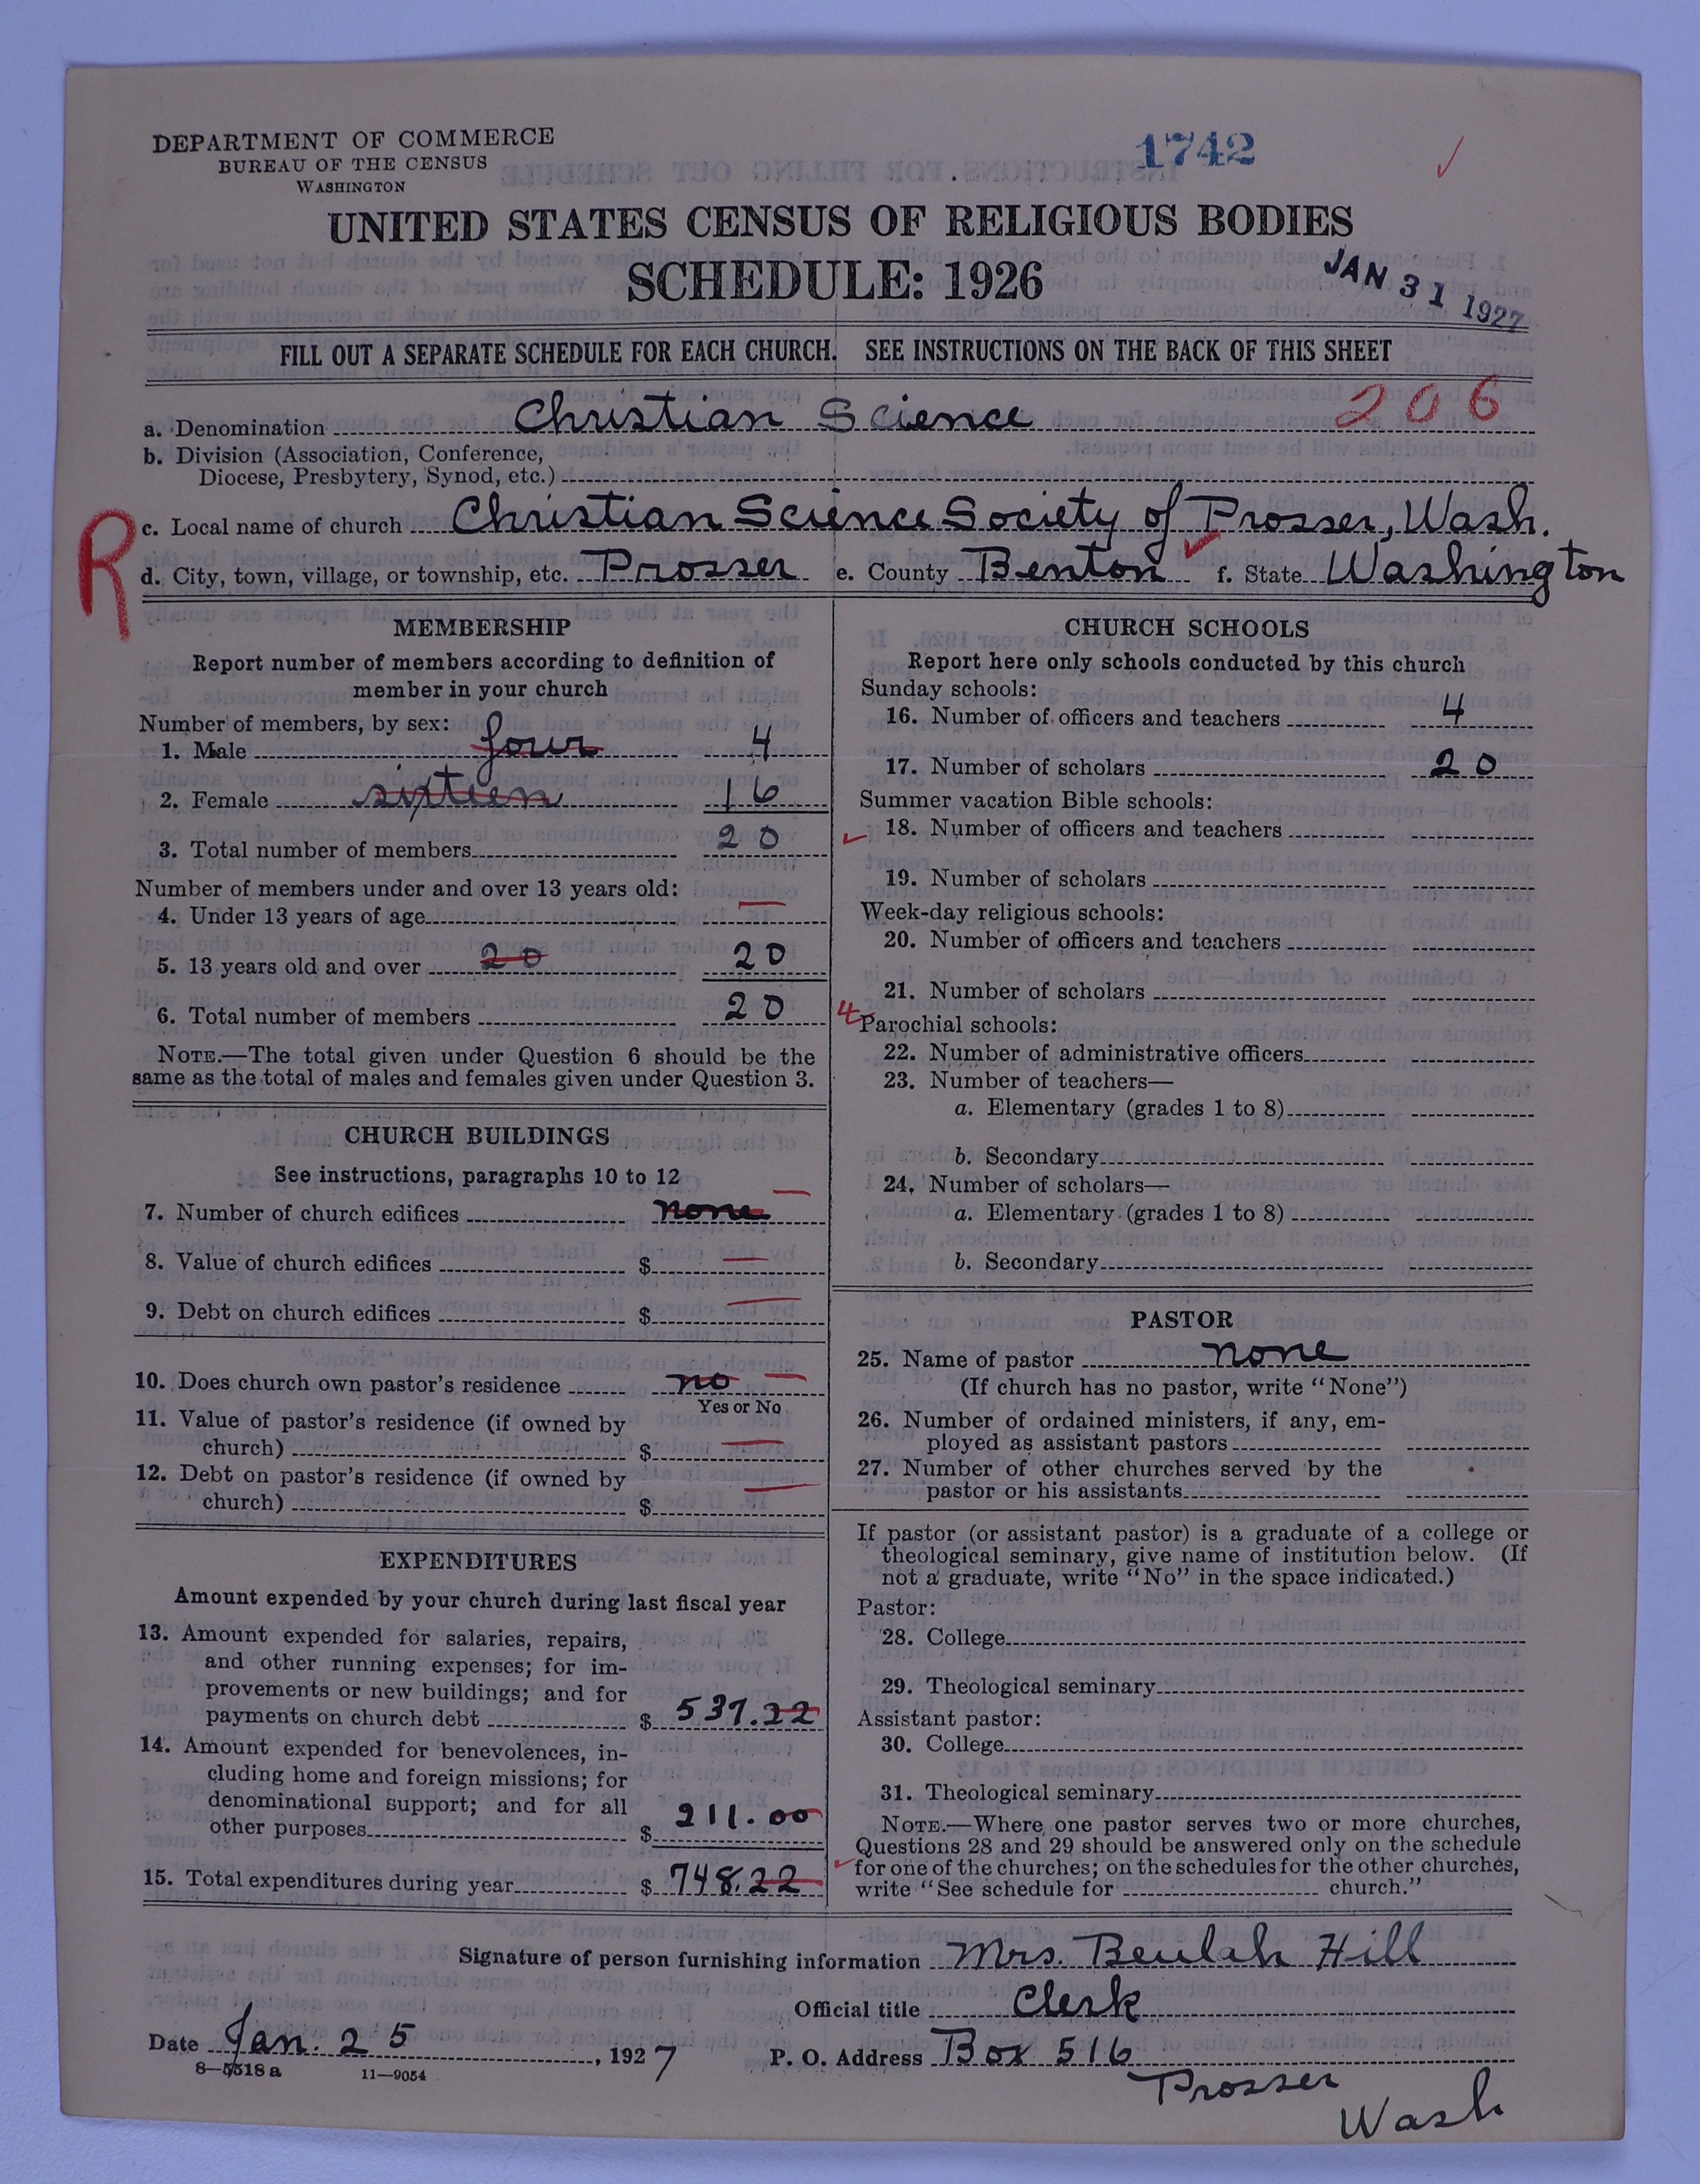 DEPARTMENT OF COMMERCE
BUREAU OF THE CENSUS
WASHINGTON
1742
UNITED STATES CENSUS OF RELIGIOUS BODIES
SCHEDULE: 1926
JAN 31 1927
FILL OUT A SEPARATE SCHEDULE FOR EACH CHURCH. SEE INSTRUCTIONS ON THE BACK OF THIS SHEET
a. Denomination Christian Science 206
b. Division (Association, Conference,
Diocese, Presbytery, Synod, etc.)
R
c. Local name of church Christian Science Society of Prosser, Wash.
d. City, town, village, or township, etc. Prosser e. County Benton f. State Washington
MEMBERSHIP
Report number of members according to definition of
member in your church
Number of members, by sex:
1. Male four 4
2. Female sixteen 16
3. Total number of members 20
Number of members under and over 13 years old:
4. Under 13 years of age —
5. 13 years old and over 20 20
6. Total number of members 20
NOTE.—The total given under Question 6 should be the
same as the total of males and females given under Question 3.
CHURCH BUILDINGS
See instructions, paragraphs 10 to 12
7. Number of church edifices none —
8. Value of church edifices $ —
9. Debt on church edifices $ —
10. Does church own pastor's residence no —
Yes or No
11. Value of pastor's residence (if owned by
church) $ —
12. Debt on pastor's residence (if owned by
church) $ —
EXPENDITURES
Amount expended by your church during last fiscal year
13. Amount expended for salaries, repairs,
and other running expenses; for im-
provements or new buildings; and for
payments on church debt $ 537.22
14. Amount expended for benevolences, in-
cluding home and foreign missions; for
denominational support; and for all
other purposes $ 211.00
15. Total expenditures during year $ 748.22
CHURCH SCHOOLS
Report here only schools conducted by this church
Sunday schools:
16. Number of officers and teachers 4
17. Number of scholars 20
Summer vacation Bible schools:
18. Number of officers and teachers
19. Number of scholars
Week-day religious schools:
20. Number of officers and teachers
21. Number of scholars
4
Parochial schools:
22. Number of administrative officers
23. Number of teachers—
a. Elementary (grades 1 to 8)
b. Secondary
24. Number of scholars—
a. Elementary (grades 1 to 8)
b. Secondary
PASTOR
25. Name of pastor none
(If church has no pastor, write "None")
26. Number of ordained ministers, if any, em-
ployed as assistant pastors
27. Number of other churches served by the
pastor or his assistants
If pastor (or assistant pastor) is a graduate of a college or
theological seminary, give name of institution below. (If
not a graduate, write "No" in the space indicated.)
Pastor:
28. College
29. Theological seminary
Assistant pastor:
30. College
31. Theological seminary
NOTE.—Where one pastor serves two or more churches,
Questions 28 and 29 should be answered only on the schedule
for one of the churches; on the schedules for the other churches,
write "See schedule for church."
Signature of person furnishing information Mrs. Beulah Hill
Official title Clerk
Date Jan. 25, 1927 P. O. Address Box 516
Prosser
Wash
8—5518 a 11—9054